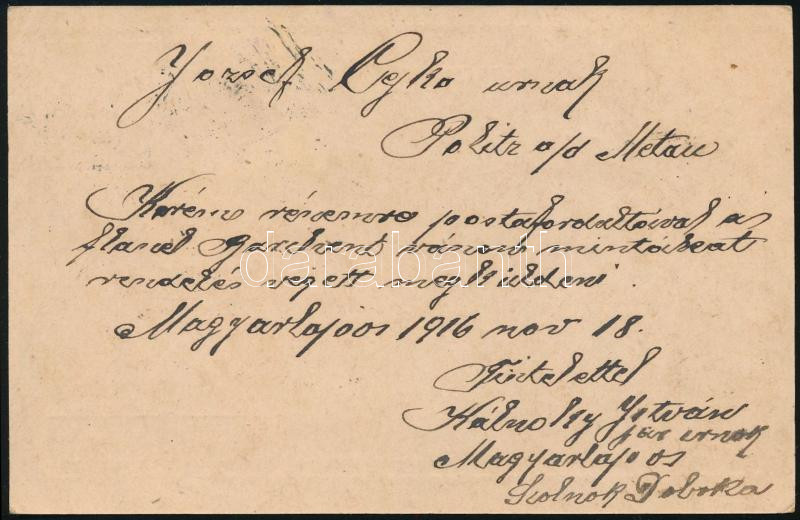 Jozsef Cejka urnak
Politz a/d Metau
Kérem részemre postafordultával a
flanél vászon mintákat
rendelés végett megküldeni.
Magyarlapos 1916 nov 18.
Tisztelettel
Kálnoky István
Magyarlapos
Szolnok Doboka
darabanth